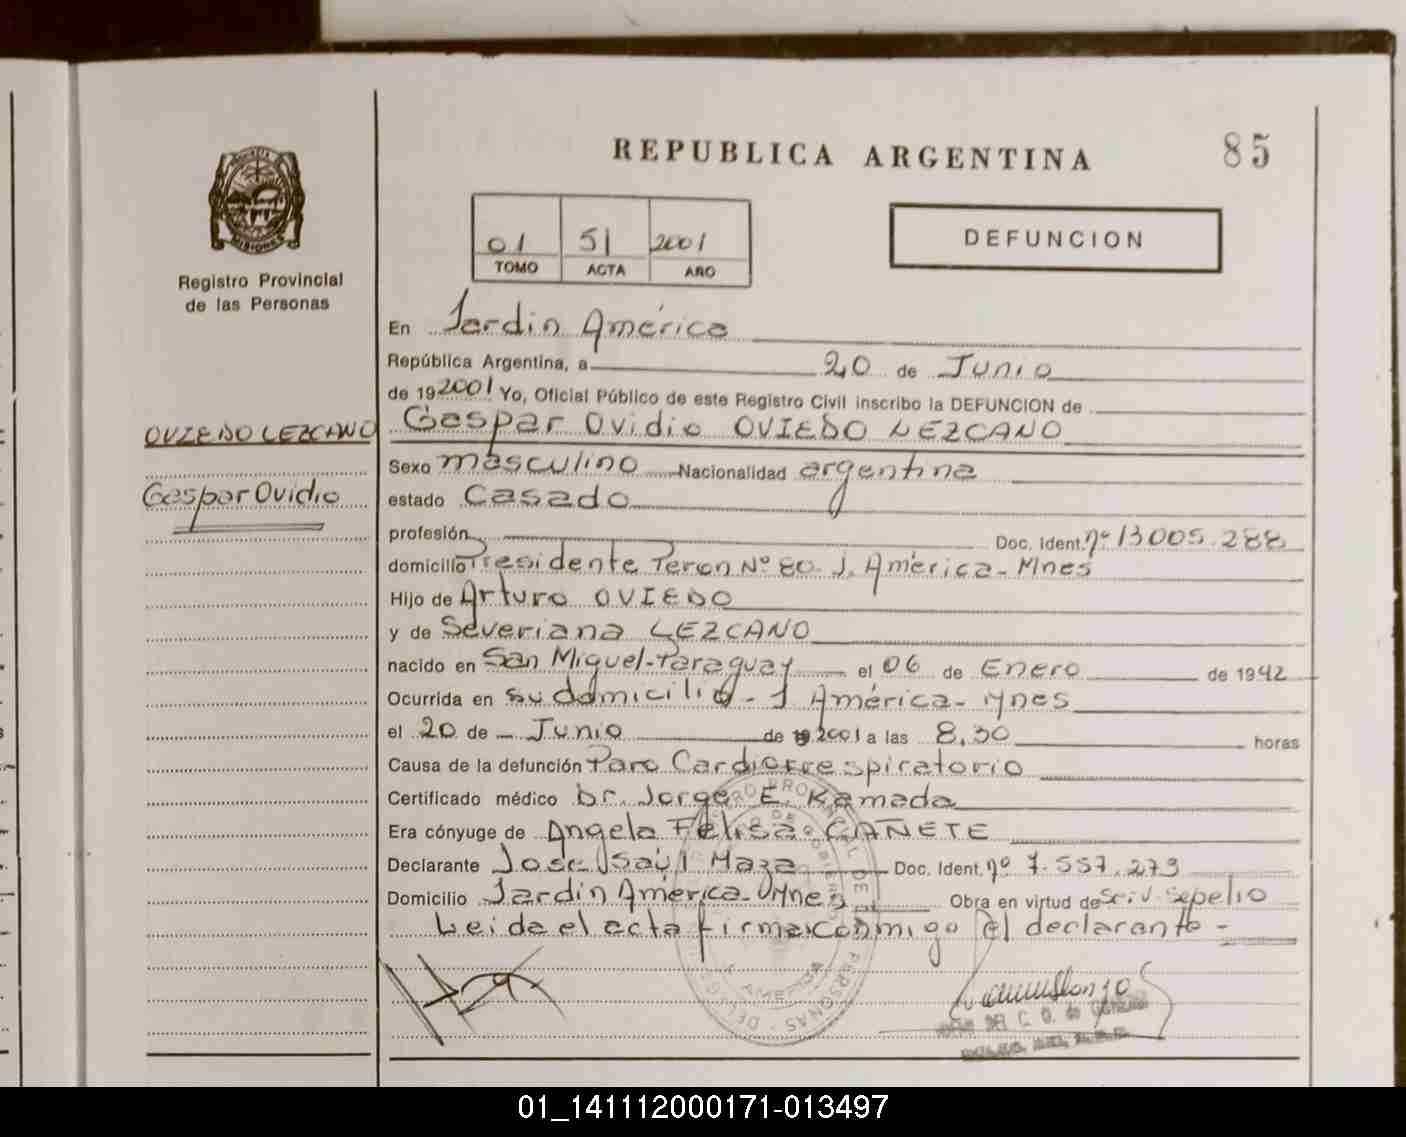 REPUBLICA ARGENTINA
85
MISIONES
Registro Provincial
de las Personas
01 51 2001
TOMO ACTA AÑO
DEFUNCION
En Jardin América
República Argentina, a 20 de Junio
de 192001 Yo, Oficial Público de este Registro Civil inscribo la DEFUNCION de
OVIEDO LEZCANO
Gaspar Ovidio OVIEDO LEZCANO
Sexo masculino Nacionalidad argentina
Gaspar Ovidio
estado Casado
profesión Doc. Ident. nº 13005.288
domicilio Presidente Peron Nº 80. J. América - Mnes
Hijo de Arturo OVIEDO
y de Severiana LEZCANO
nacido en San Miguel - Paraguay el 06 de Enero de 1942
Ocurrida en su domicilio - J América - Mnes
el 20 de Junio de 192001 a las 8,30 horas
Causa de la defunción Paro Cardiorrespiratorio
Certificado médico Dr. Jorge E. Kamada
Era cónyuge de Angela Felisa CAÑETE
Declarante Jose Saúl Maza Doc. Ident. nº 7.557.279
Domicilio Jardin América - Mnes Obra en virtud de Serv. Sepelio
Leida el acta firma conmigo el declarante -
01_141112000171-013497